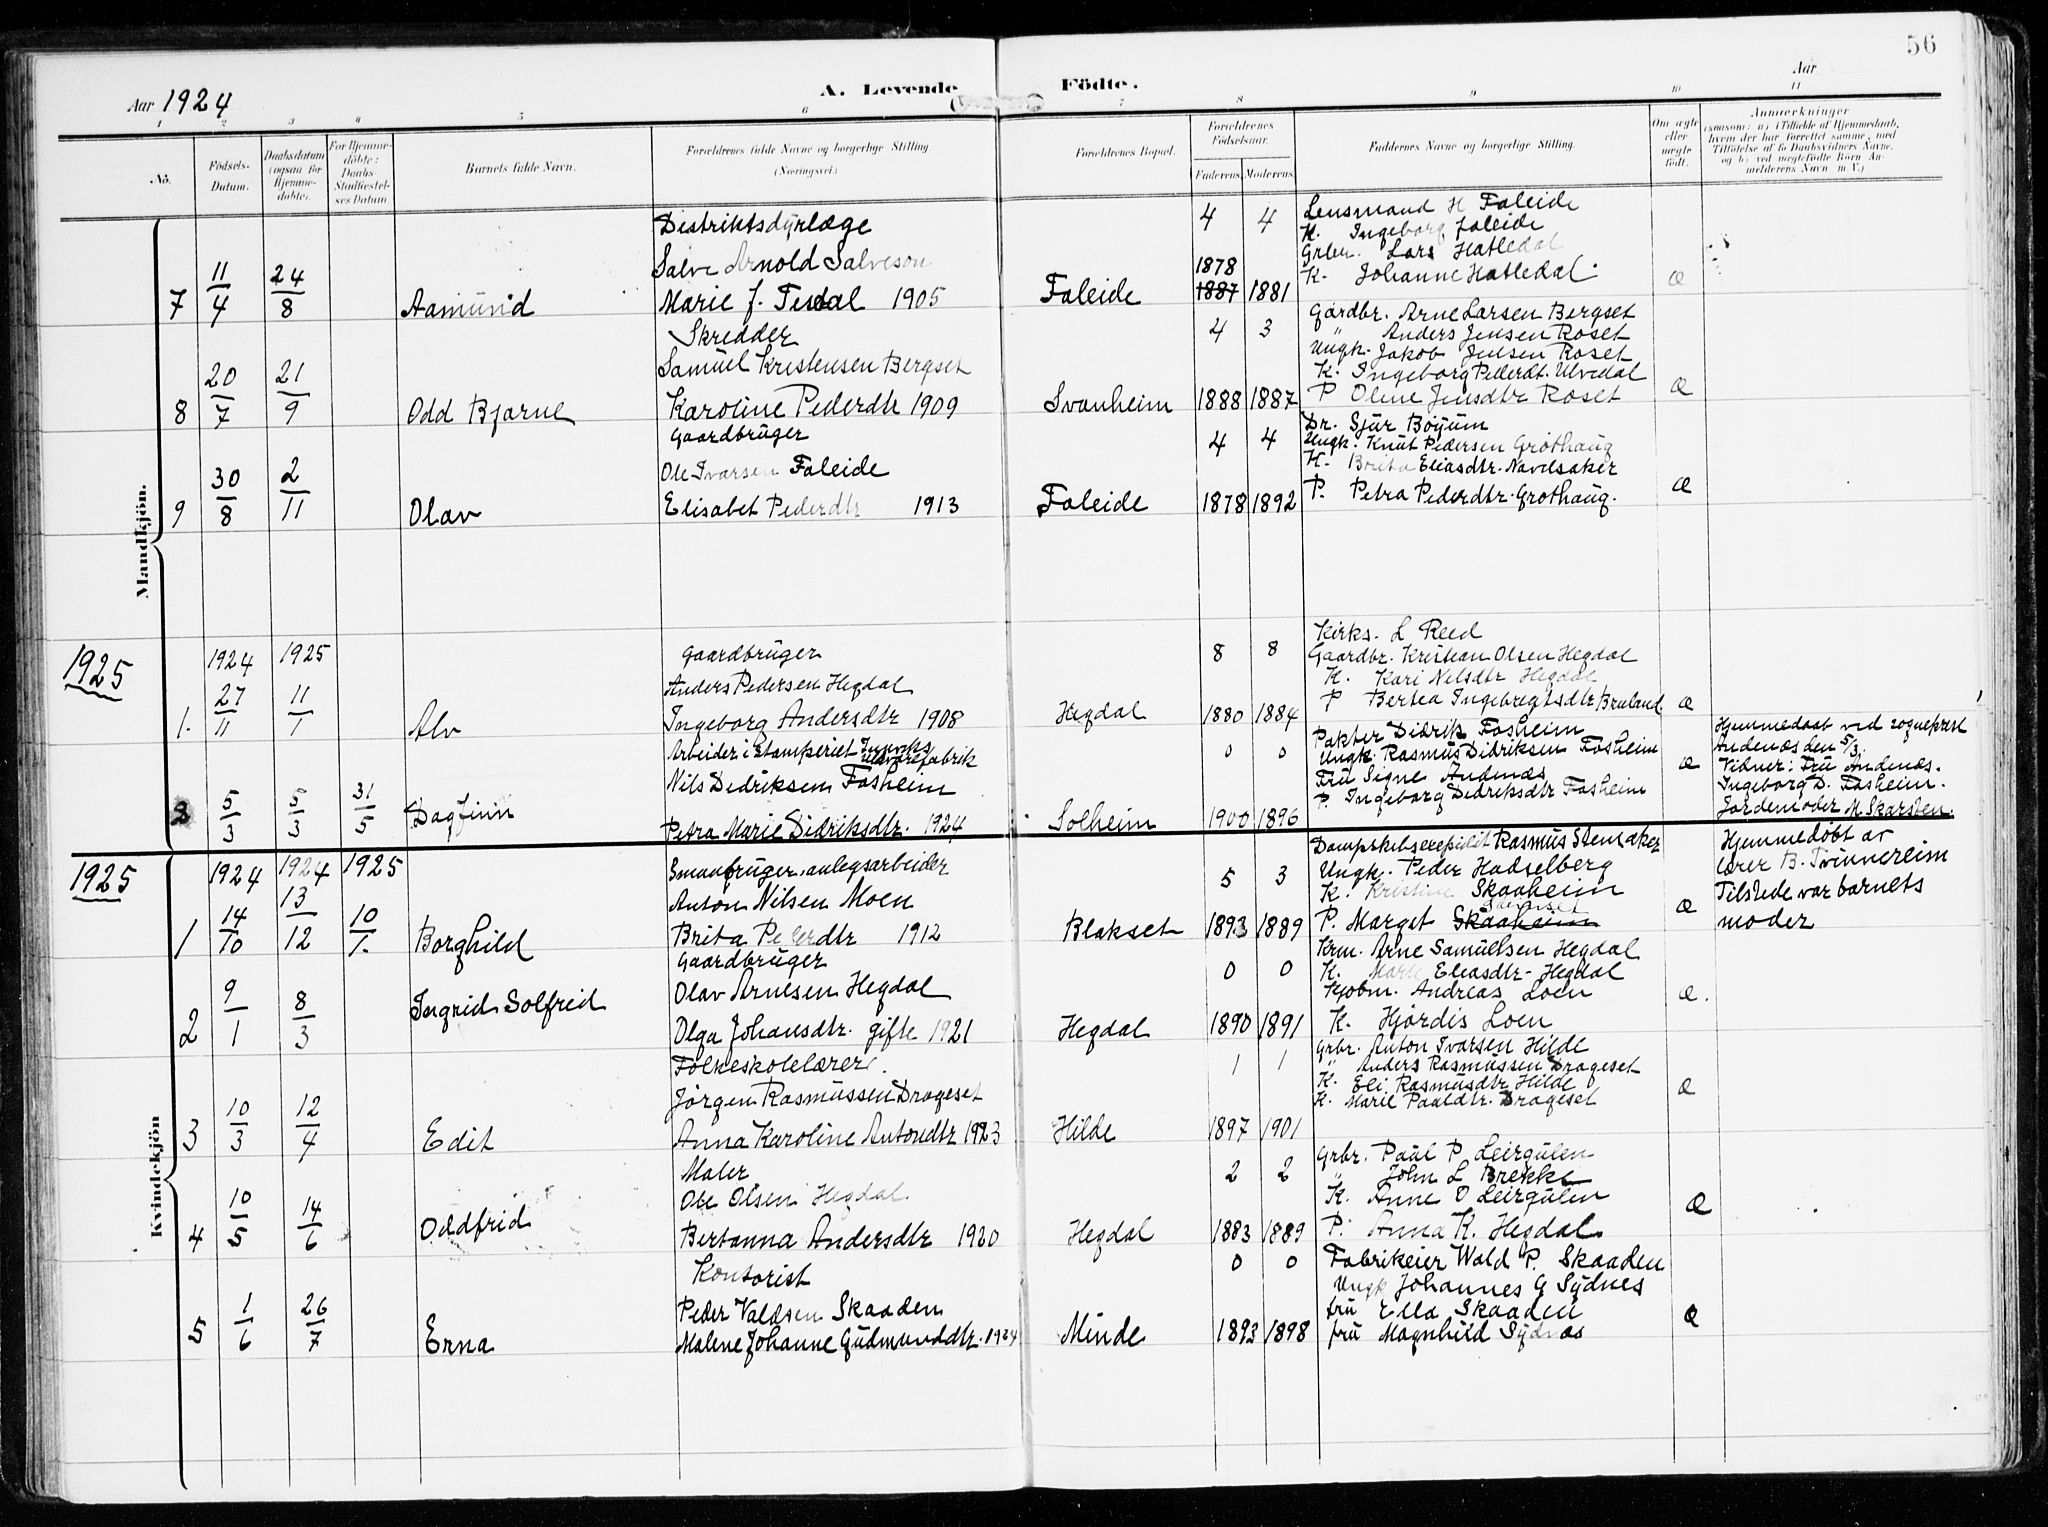 56
Aar 1924
A. Levende Födte.
Aar
1 2 3 4 5 6 7 8 9 10 11
No.
Födsels-Datum.
Daabsdatum (ogsaa for Hjemme-döbte).
For Hjemme-döbte: Daabs-Stadfæstel-ses Datum.
Barnets fulde Navn.
Forældrenes fulde Navne og borgerlige Stilling. (Næringsvei.)
Forældrenes Bopæl.
Forældrenes Födselsaar.
Faderens. Moderens.
Faddernes Navne og borgerlige Stilling.
Om ægte eller uægte födt.
Anmærkninger
(saasom: a) i Tilfælde af Hjemmedaab, hvem der har forrettet samme, med Tilföielse af to Daabsvidners Navne, og b) ved uægtefödte Børn An-melderens Navn m. V.)
Mandkjön.
7 11/4 24/8 Aamund
Distriktsdyrlæge
Salve Arnold Salveson
Marie J. Tesdal 1905
Faleide
4 4
1878
1887 1881
Lensmand H Faleide
K. Ingeborg Faleide
Grbr. Lars Hatledal
K. Johanne Hatledal.
Æ
8 20/7 21/9 Odd Bjarne
Skredder
Samuel Kristensen Bergset
Karoline Pederdtr 1909
Svanheim
4 3
1888 1887
Gardbr. Arne Larsen Bergset
" Anders Jensen Roset
Ungk. Jakob Jensen Roset
K. Ingeborg Pederdt. Ulvedal
P Oline Jensdtr Roset
Æ
9 30/8 2/11 Olav
Gaardbruger
Ole Ivarsen Faleide
Elisabet Pederdtr 1913
Faleide
4 4
1878 1892
Dr. Sjur Bøyum
Ungk. Knut Pedersen Grothaug
K. Brita Eliasdtr. Navelsaker
P. Petra Pederdtr. Grothaug.
Æ
1925
1924 1925
1. 27/11 11/1 Alv
Gaardbruger
Anders Pedersen Hegdal
Ingeborg Andersdtr 1908
Hegdal
8 8
1880 1884
Kirks. L Reed
Gaardbr. Kristian Olsen Hegdal
K. Kari Nilsdtr Hegdal
P Bertea Ingebregtsdtr Bruland
Æ
5/3 5/3 31/5 Dagfinn
Arbeider i stamperiet Innviks uldvarefabrik
Nils Didriksen Fosheim
Petra Marie Didriksdtr. 1924
Solheim
0 0
1900 1896
Pakter Didrik Fosheim
Ungk. Rasmus Didriksen Fosheim
Fru Signe Andenæs
P. Ingeborg Didriksdtr Fosheim
Æ
Hjemmedaab ved sogneprest
Andenæs den 5/3.
Vidner: Fru Andenæs.
Ingeborg D. Fosheim.
Jordemoder M. Skarsten.
Kvindekjön
1925
1924 1924 1925
1 14/10 13/12 10/1. Borghild
Smaabruger, anlegsarbeider
Anton Nilsen Moen
Brita Pederdtr 1912
Blakset
5 3
1893 1889
Dampskibsexepiditør Rasmus Stensaker
Ungk. Peder Hadselberg
K. Kristine Skaaheim
P. Marget Skaaheim
Æ
Hjemmedøbt av
lærer B. Tvinnereim
Tilstede var barnets
moder
2 9/1 8/3 Ingrid Solfrid
Gaardbruger
Olav Arnesen Hegdal
Olga Johansdtr. gifte 1921
Hegdal
0 0
1890 1891
Krm. Arne Samuelsen Hegdal
K. Marie Eliasdtr. Hegdal
Kjøbm. Andreas Loen
K. Hjørdis Loen
Æ.
3 10/3 12/4 Edit
Folkeskolelærer.
Jørgen Rasmussen Drageset
Anna Karoline Antondtr 1923
Hilde
1 1
1897 1901
Grbr. Anton Ivarsen Hilde
" Anders Rasmussen Drageset
K. Eli Rasmusdtr Hilde
K. Marie Pauldtr. Drageset
Æ
4 10/5 14/6 Oddfrid
Maler
Ole Olsen Hegdal.
Bertanna Andersdtr 1920
Hegdal
2 2
1883 1889
Grbr. Paul P. Leirgulen
" John L Brekke
K. Anne O Leirgulen
P. Anna K. Hegdal.
Æ
5 1/6 26/7 Erna
Kontorist
Peder Valdsen Skaaden
Malene Johanne Gudmunddtr. 1924
Minde
0 0
1893 1898
Fabrikeier Wald P. Skaaden
Ungk Johannes G Sydnes
fru Ella Skaaden
fru Magnhild Sydnæs
Æ